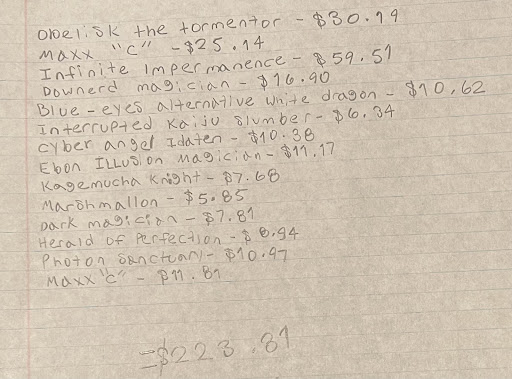 obelisk the tormentor - $30.19
Maxx "C" - $25.14
Infinite Impermanence - $59.51
Downerd magician - $16.90
Blue-eyes alternative white dragon - $10.62
Interrupted Kaiju Slumber - $6.34
cyber angel Idaten - $10.38
Ebon ILLUSION Magician - $11.17
Kagemucha Knight - $7.68
Marshmallon - $5.85
Dark magician - $7.81
Herald of Perfection - $8.94
Photon Sanctuary - $10.97
Maxx "C" - $11.81
=$223.81